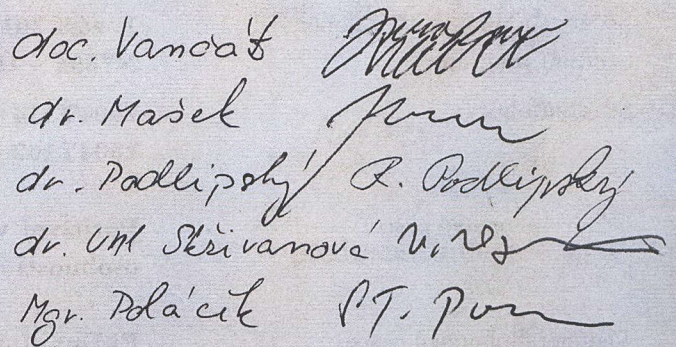 doc. Vančát
dr. Mašek
dr. Podlipský R. Podlipský
dr. Uhl Skřivanová
Mgr. Poláček